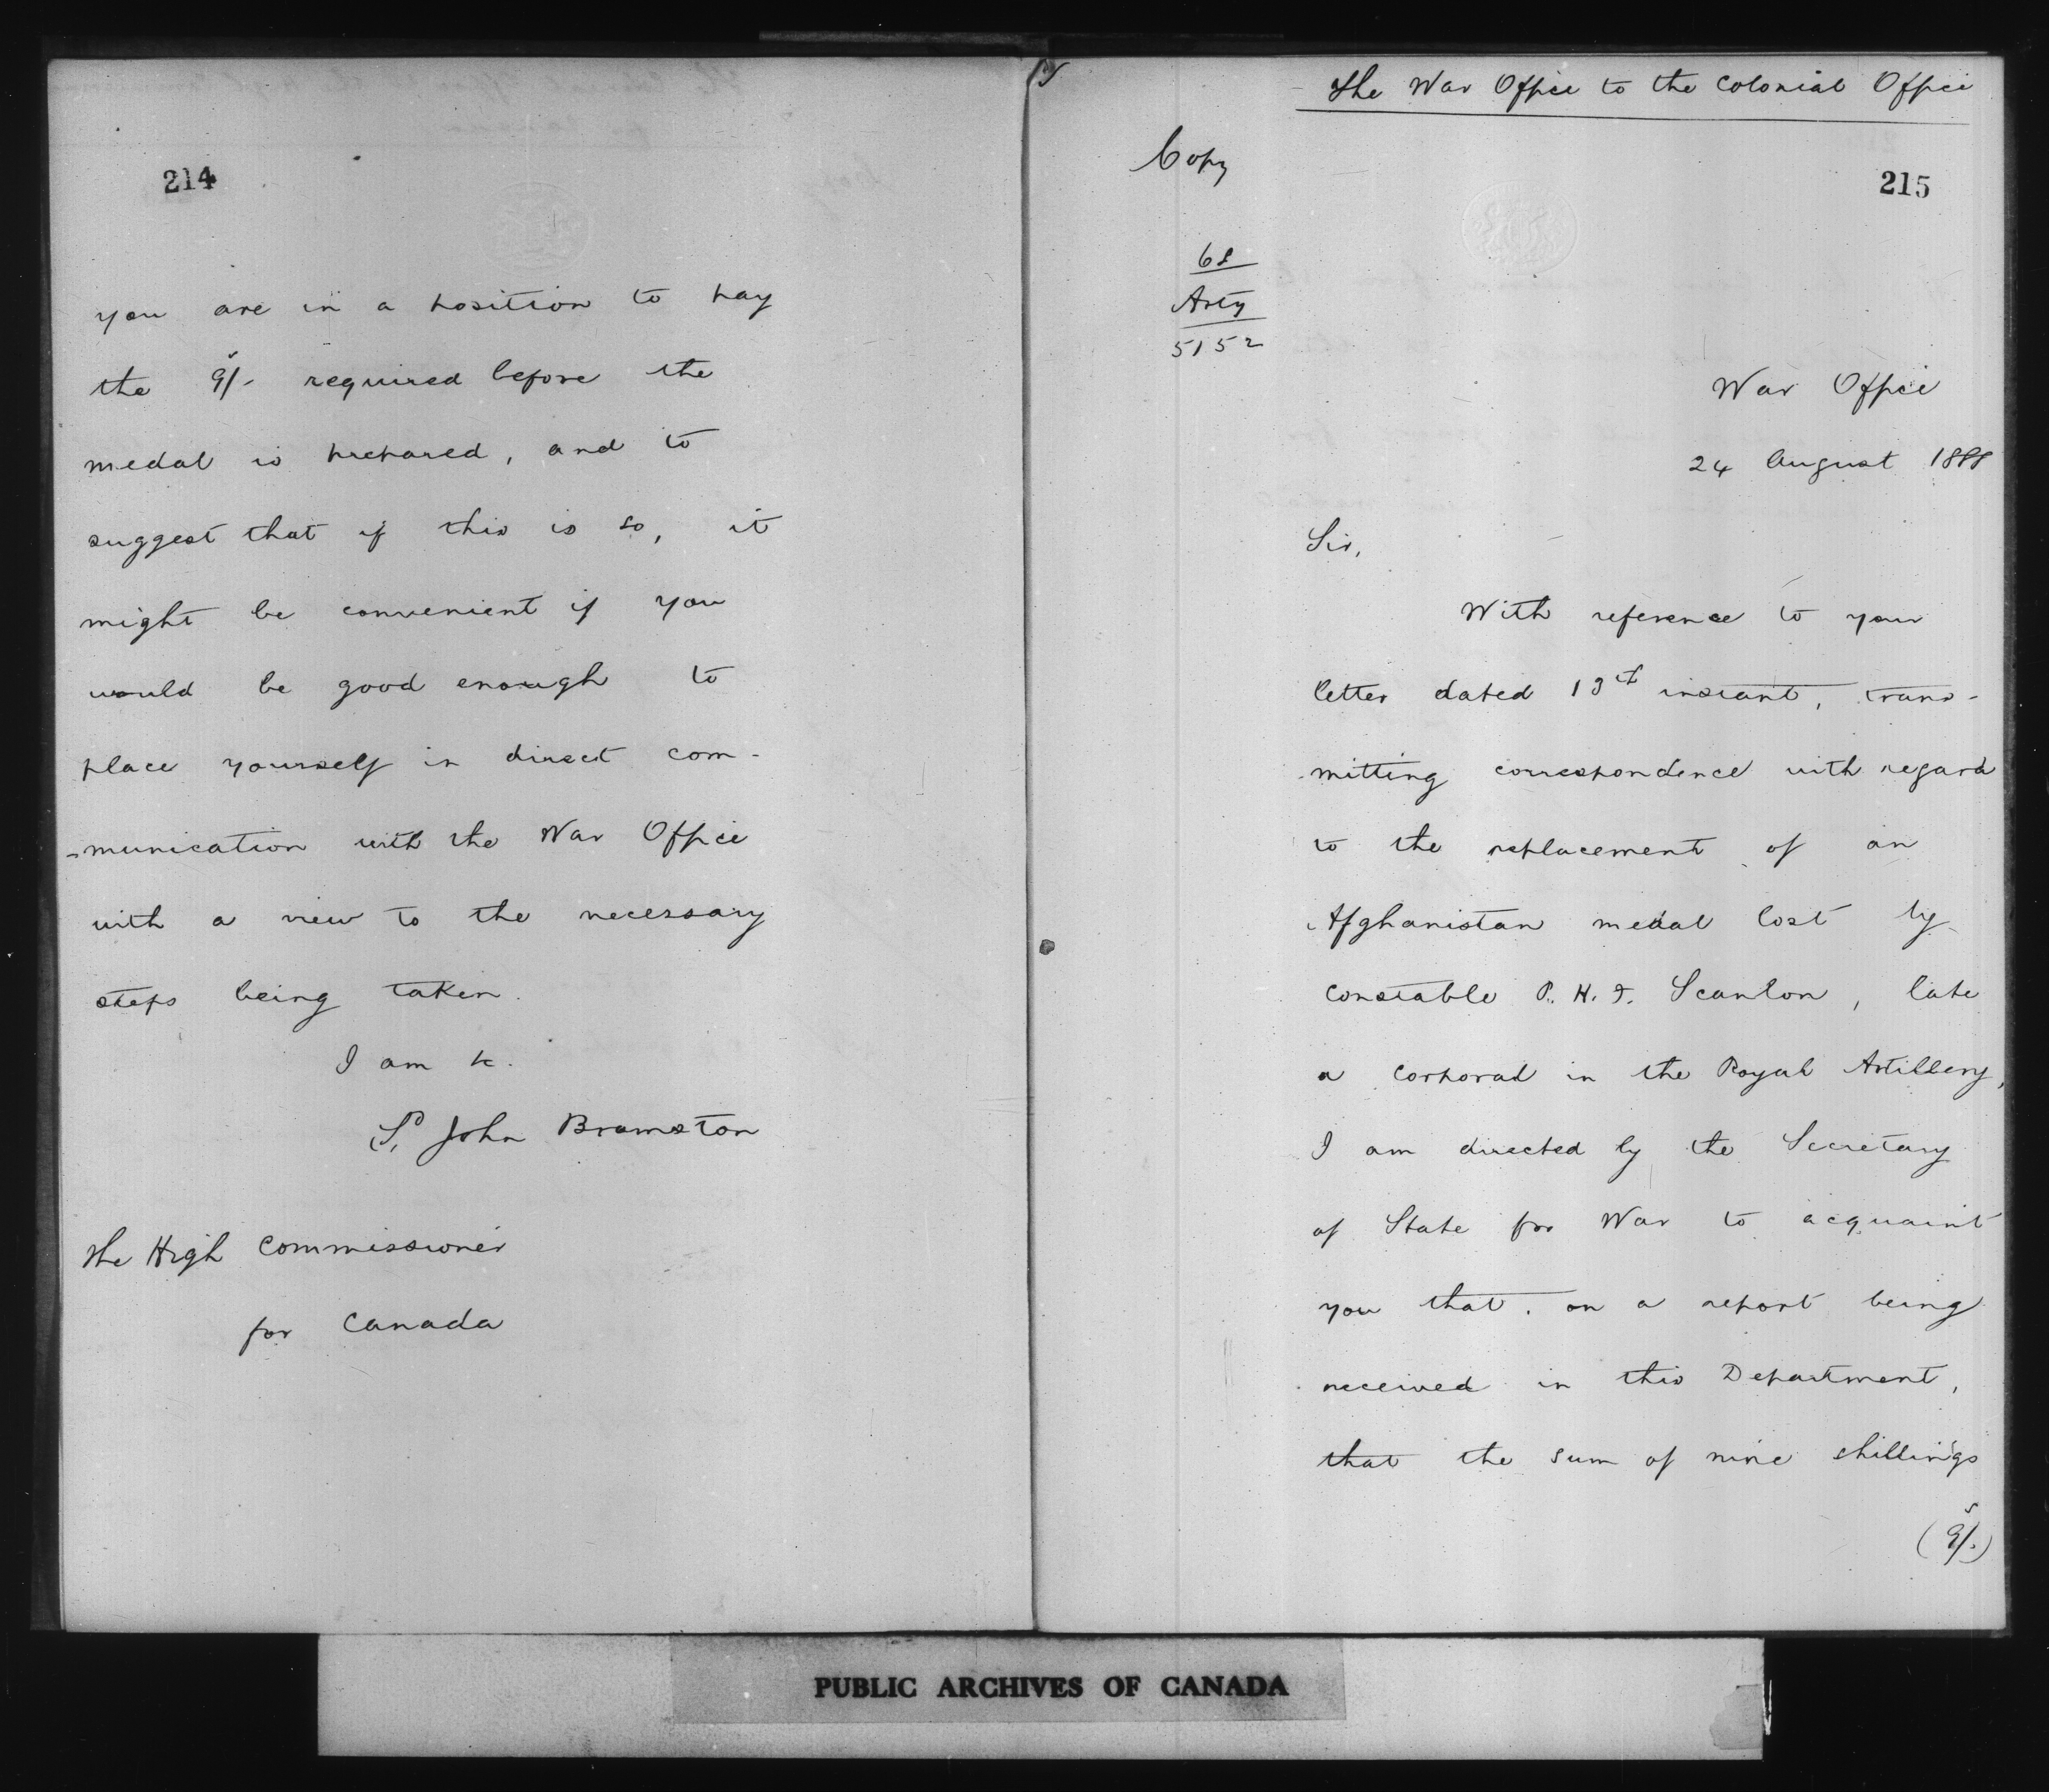 214
you are in a position to pay
the 9s/- required before the
medal is prepared, and to
suggest that if this is so, it
might be convenient if you
would be good enough to
place yourself in direct com-
-munication with the War Office
with a view to the necessary
steps being taken.
I am &c.
John Bramston
The High Commissioner
for Canada
The War Office to the Colonial Office
Copy
215
68
Arty
5152
War Office
24 August 1888
Sir,
With reference to your
letter dated instant, trans-
-mitting correspondence with regard
to the replacement of an
Afghanistan medal lost by
Constable P. H. F. Scanlon, late
a Corporal in the Royal Artillery,
I am directed by the Secretary
of State for War to acquaint
you that, on a report being
received in this Department,
that the sum of nine shillings
(9s/-)
PUBLIC ARCHIVES OF CANADA